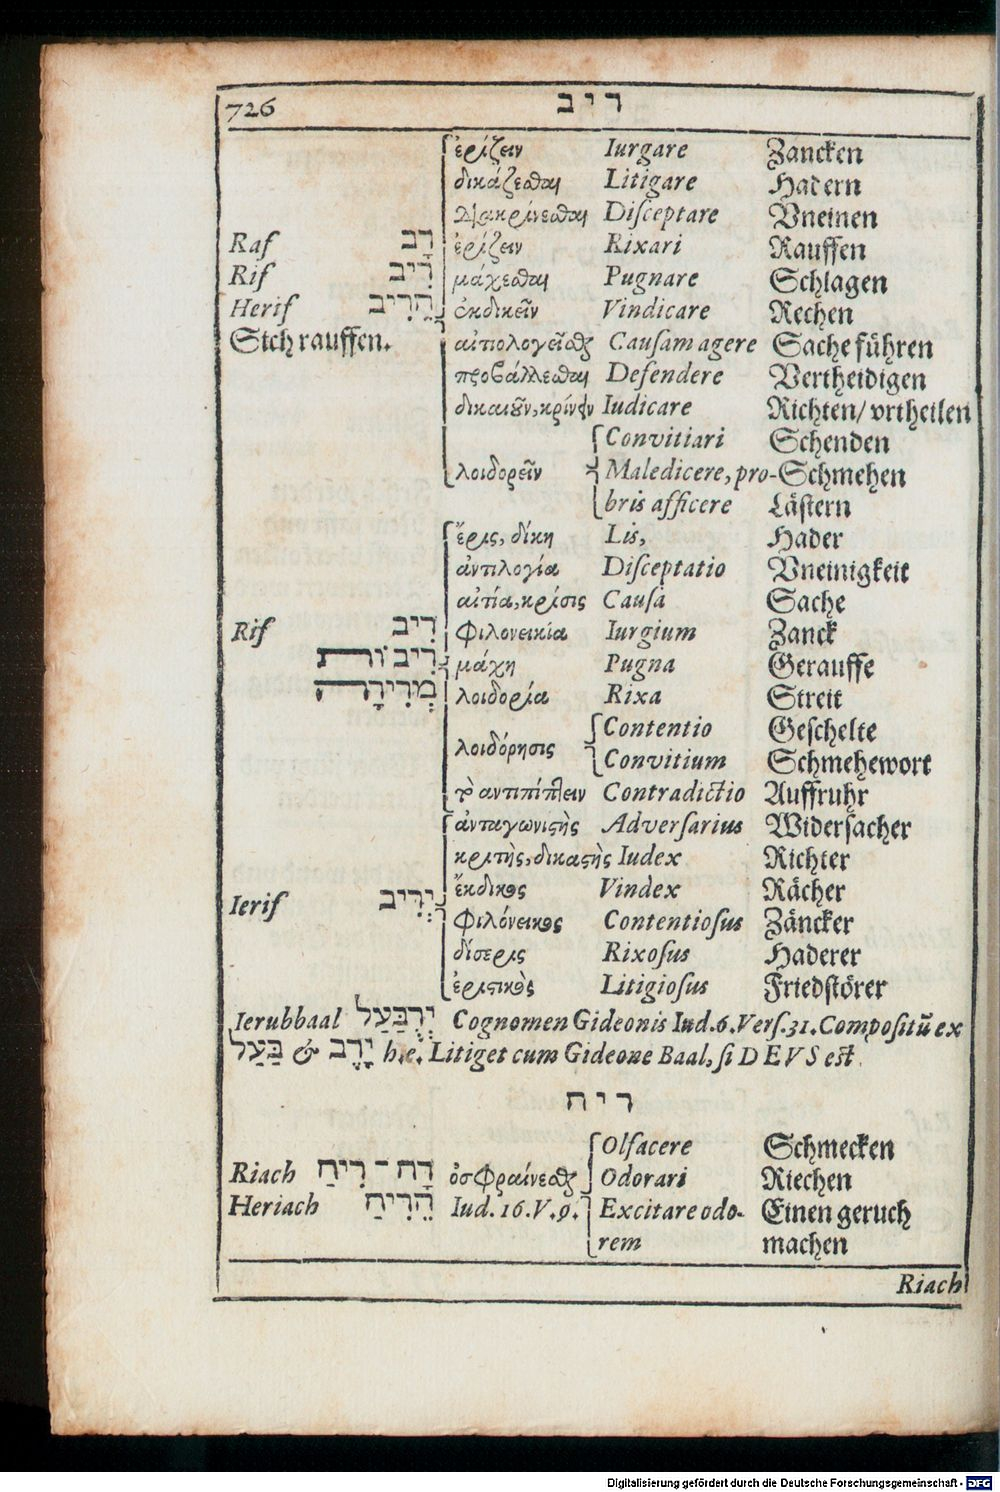 726 ריב
ἐρίζειν Iurgare Zancken
δικάζεσθαι Litigare Hadern
διακρίνεσθαι Diſceptare Vneinen
Raf רָב ἐρίζειν Rixari Rauffen
Rif רִיב μάχεσθαι Pugnare Schlagen
Herif הֵרִיב ἐκδικεῖν Vindicare Rechen
Sich rauffen. αἰτιολογεῖσθαι Cauſam agere Sache führen
προβάλλεσθαι Defendere Vertheidigen
δικαιοῦν, κρίνειν Iudicare Richten/ vrtheilen
Convitiari Schenden
λοιδορεῖν Maledicere, pro- Schmehen
bris afficere Läſtern
ἔρις, δίκη Lis, Hader
ἀντιλογία Diſceptatio Vneinigkeit
αἰτία, κρίσις Cauſa Sache
Rif רִיב φιλονεικία Iurgium Zanck
רִיבוֹת μάχη Pugna Gerauffe
מְרִירָה λοιδορία Rixa Streit
Contentio Geſchelte
λοιδόρησις Convitium Schmehewort
τὸ ἀντιπίπτειν Contradictio Auffruhr
ἀνταγωνιστὴς Adverſarius Widerſacher
κριτὴς, δικαστὴς Iudex Richter
Ierif יְרִיב ἔκδικος Vindex Rächer
φιλόνεικος Contentioſus Zäncker
δίσερις Rixoſus Haderer
ἐριστικὸς Litigioſus Friedſtörer
Ierubbaal יְרֻבַּעַל Cognomen Gideonis Iud. 6. Verſ. 31. Compoſitũ ex
יָרֶב & בַּעַל h. e. Litiget cum Gideone Baal, ſi DEVS eſt.
ריח
Olfacere Schmecken
Riach רָח - רִיחַ ὀσφραίνεσθαι Odorari Riechen
Heriach הֵרִיחַ Iud. 16. V. 9. Excitare odo- Einen geruch
rem machen
Riach
Digitalisierung gefördert durch die Deutsche Forschungsgemeinschaft - DFG